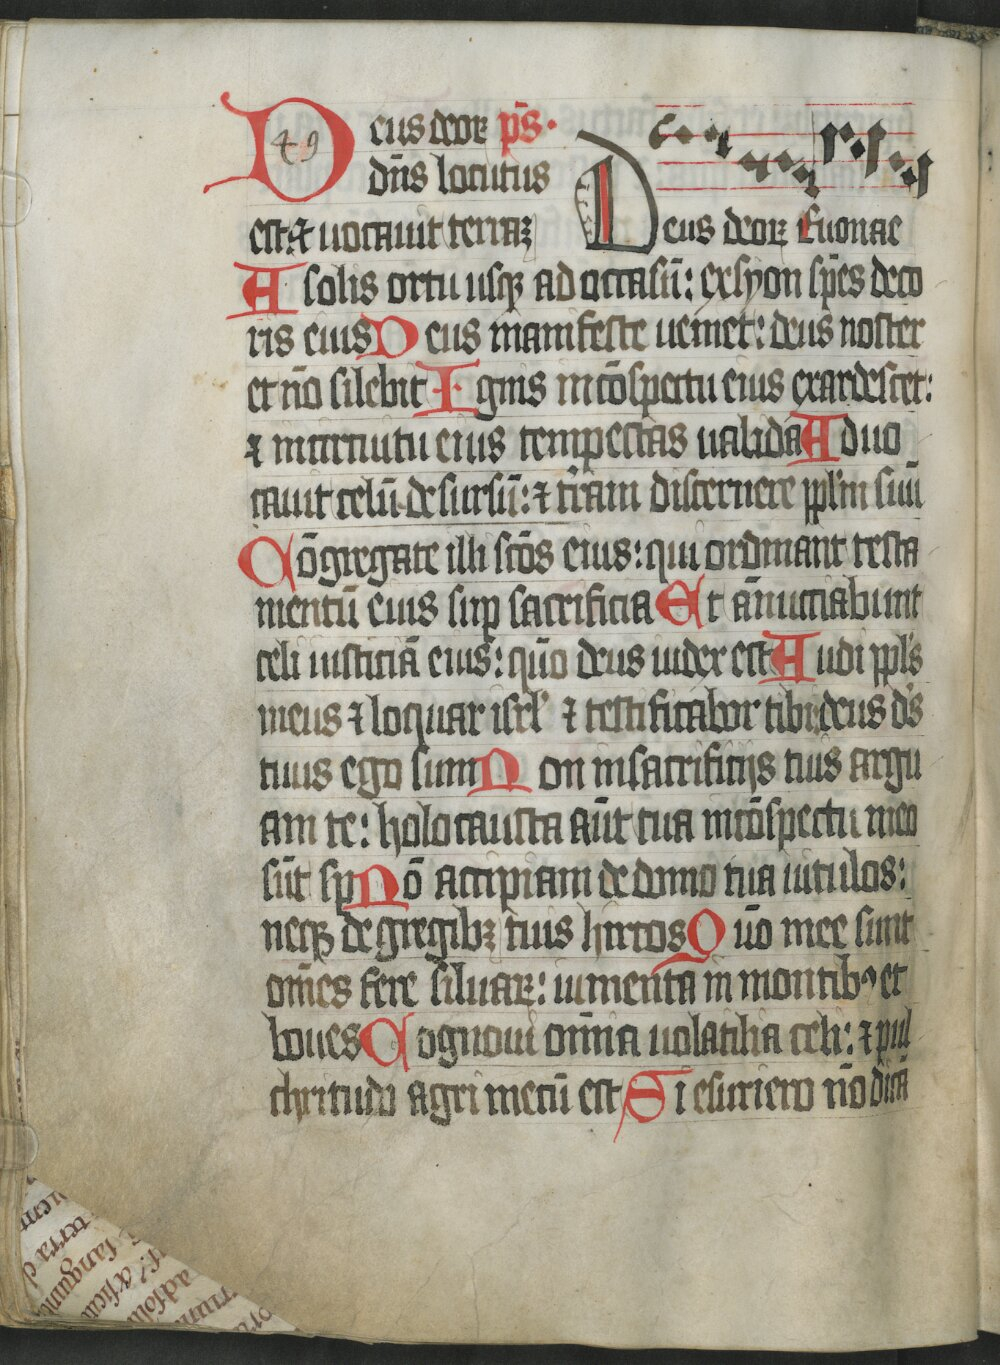 Deus deoꝝ p̄s.
49
dn̄s locutus
est ⁊ uocauit terraꝫ
Deus deoꝝ Euouae
A solis ortu usqꝫ ad occasū: ex syon sp̄es deco
ris eius Deus manifeste ueniet: deus noster
et nō silebit Ignis in cōspectu eius exardescet:
⁊ in circuitu eius tempestas ualida Aduo
cauit celū desursū: ⁊ t̄ram discernere ppl'm suū
Cōgregate illi scōs eius: qui ordinant testa
mentū eius sup sacrificia Et ānuctiabunt
celi iusticiā eius: qūo deus iudex est Audi ppl's
meus ⁊ loquar isrl' ⁊ testificabor tibi: deus d's
tuus ego sum Non in sacrificijs tuis argu
am te: holocausta aūt tua in cōspectu meo
sūt sp Nō accipiam de domo tua uitulos:
neqꝫ de gregibꝫ tuis hircos Qūo mee sunt
om̄es fere siluaꝝ: iumenta in montibꝰ et
boues Cognoui om̄ia uolatilia celi: ⁊ pul
chritudo agri mecū est Si esuriero nō dicā
terra
sanguin